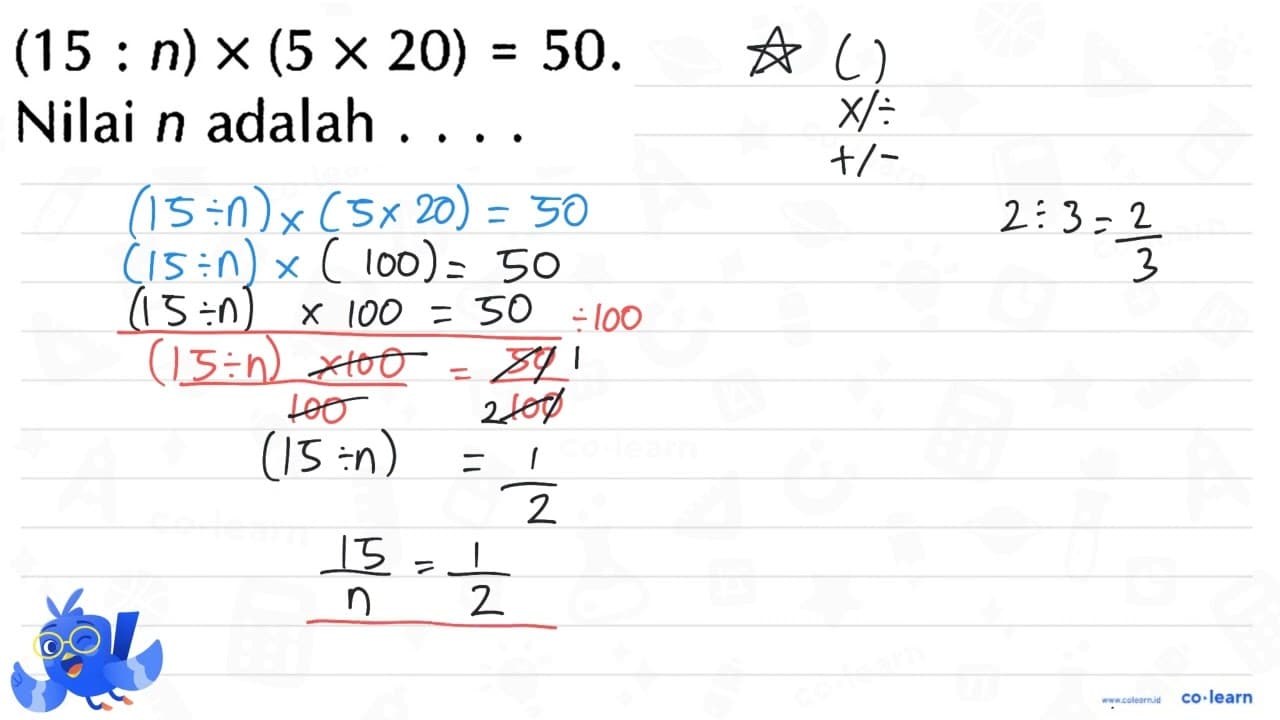 (15 : n) × (5 × 20) = 50.
Nilai n adalah . . . .
☆ ( )
×/÷
+/-
(15 ÷ n) × (5 × 20) = 50
(15 ÷ n) × ( 100) = 50
(15 ÷ n) × 100 = 50 ÷100
(15 ÷ n) ×100 = 50 1
100 2 100
(15 ÷ n) = 1
2
15 = 1
n 2
2 : 3 = 2
3
www.colearn.id co·learn